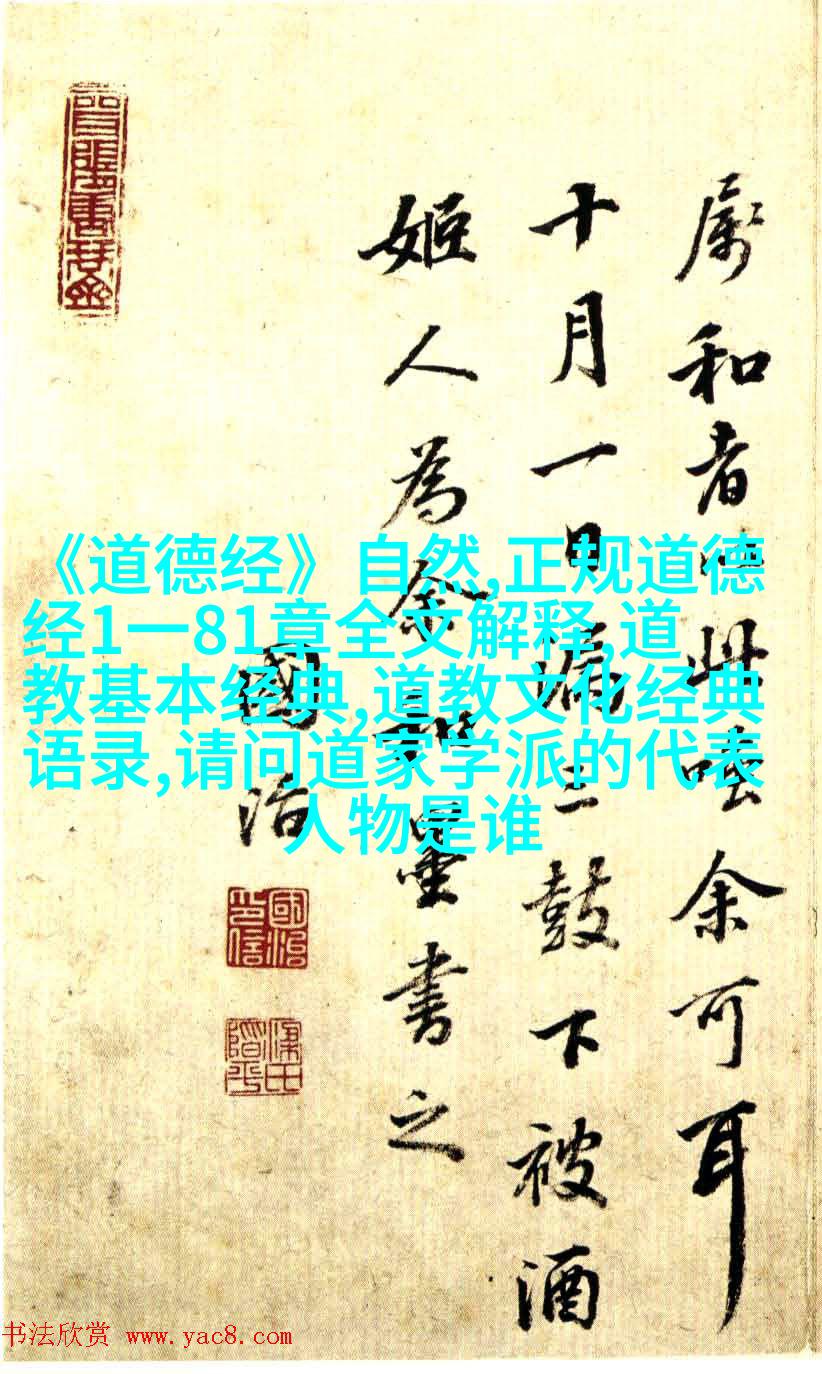 属和者以此咲余可耳
十月一日漏三鼓下被酒
姬人為余 墨書之
國治
《道德经》自然,正规道德
经1一81章全文解释,道
教基本经典,道教文化经典
语录,请问道家学派的代表
人物是谁
國治
印信
书法欣赏 www.yac8.com